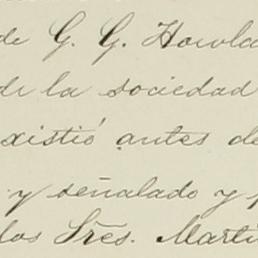 de G. G. Howla
de la sociedad
existió antes de
y señalado y
los Sres. Marti